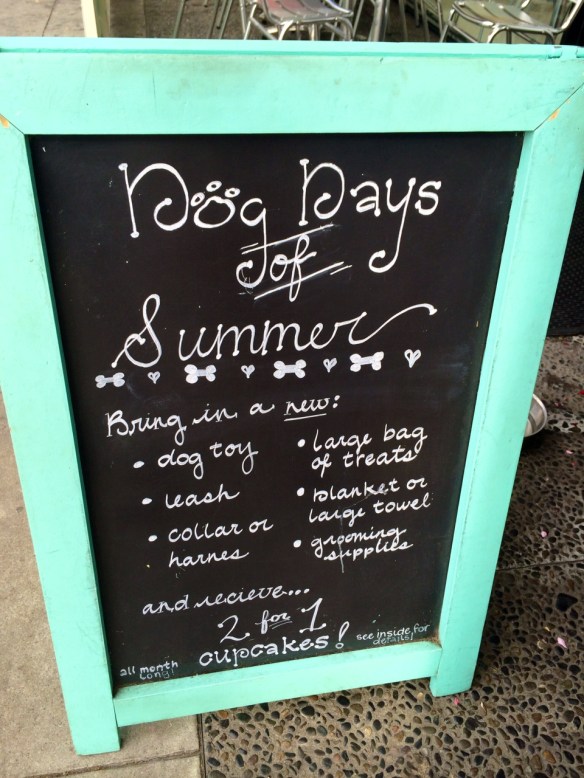 Dog Days
of
Summer
Bring in a new:
• dog toy
• leash
• collar or
harnes
• large bag
of treats
• blanket or
large towel
• grooming
supplies
and recieve...
2 for 1
cupcakes!
see inside for
details!
all month
long!